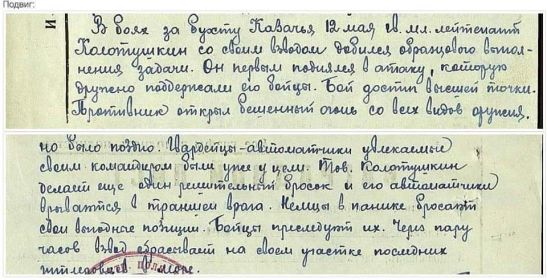 Подвиг:
И
В боях за бухту Казачья 12 мая гв. мл. лейтенант
Колотушкин со своим взводом добился образцового выпол-
нения задачи. Он первым поднялся в атаку, которую
дружно поддержали его бойцы. Бой достиг высшей точки.
Противник открыл бешенный огонь со всех видов оружия,
но было поздно. Гвардейцы-автоматчики увлекаемые
своим командиром были уже у цели. Тов. Колотушкин
делает еще один решительный бросок и его автоматчики
врываются в траншеи врага. Немцы в панике бросают
свои выгодные позиции. Бойцы преследуют их. Через пару
часов взвод сбрасывает на своем участке последних
гитлеровцев в море.